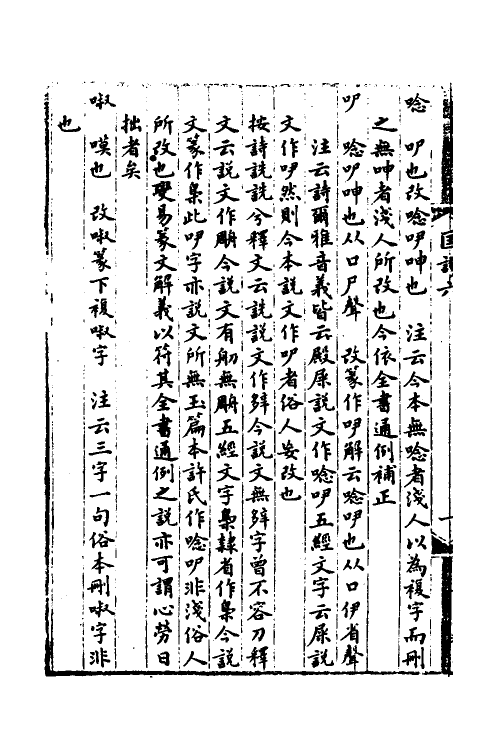 唸　吚也改唸吚呻也　注云今本無唸者淺人以為複字而刪
之無呻者淺人所改也今依全書通例補正
吚　唸吚呻也从口尸聲　改篆作吚解云唸吚也从口伊省聲
注云詩爾雅音義皆云殿屎說文作唸吚五經文字云屎說
文作吚然則今本說文作吚者俗人妄改也
按詩詵詵今釋文云詵詵說文作辡今說文無辡字曾不容刀釋
文云說文作𦩍今說文有舠無𦩍五經文字臬隸省作臬今說
文篆作臬此吚字亦說文所無玉篇本許氏作唸吚非淺俗人
所改也變易篆文解義以符其全書通例之說亦可謂心勞日
拙者矣
㗜　嘆也　改㗜篆下複㗜字　注云三字一句俗本刪㗜字非
也
匡謬六